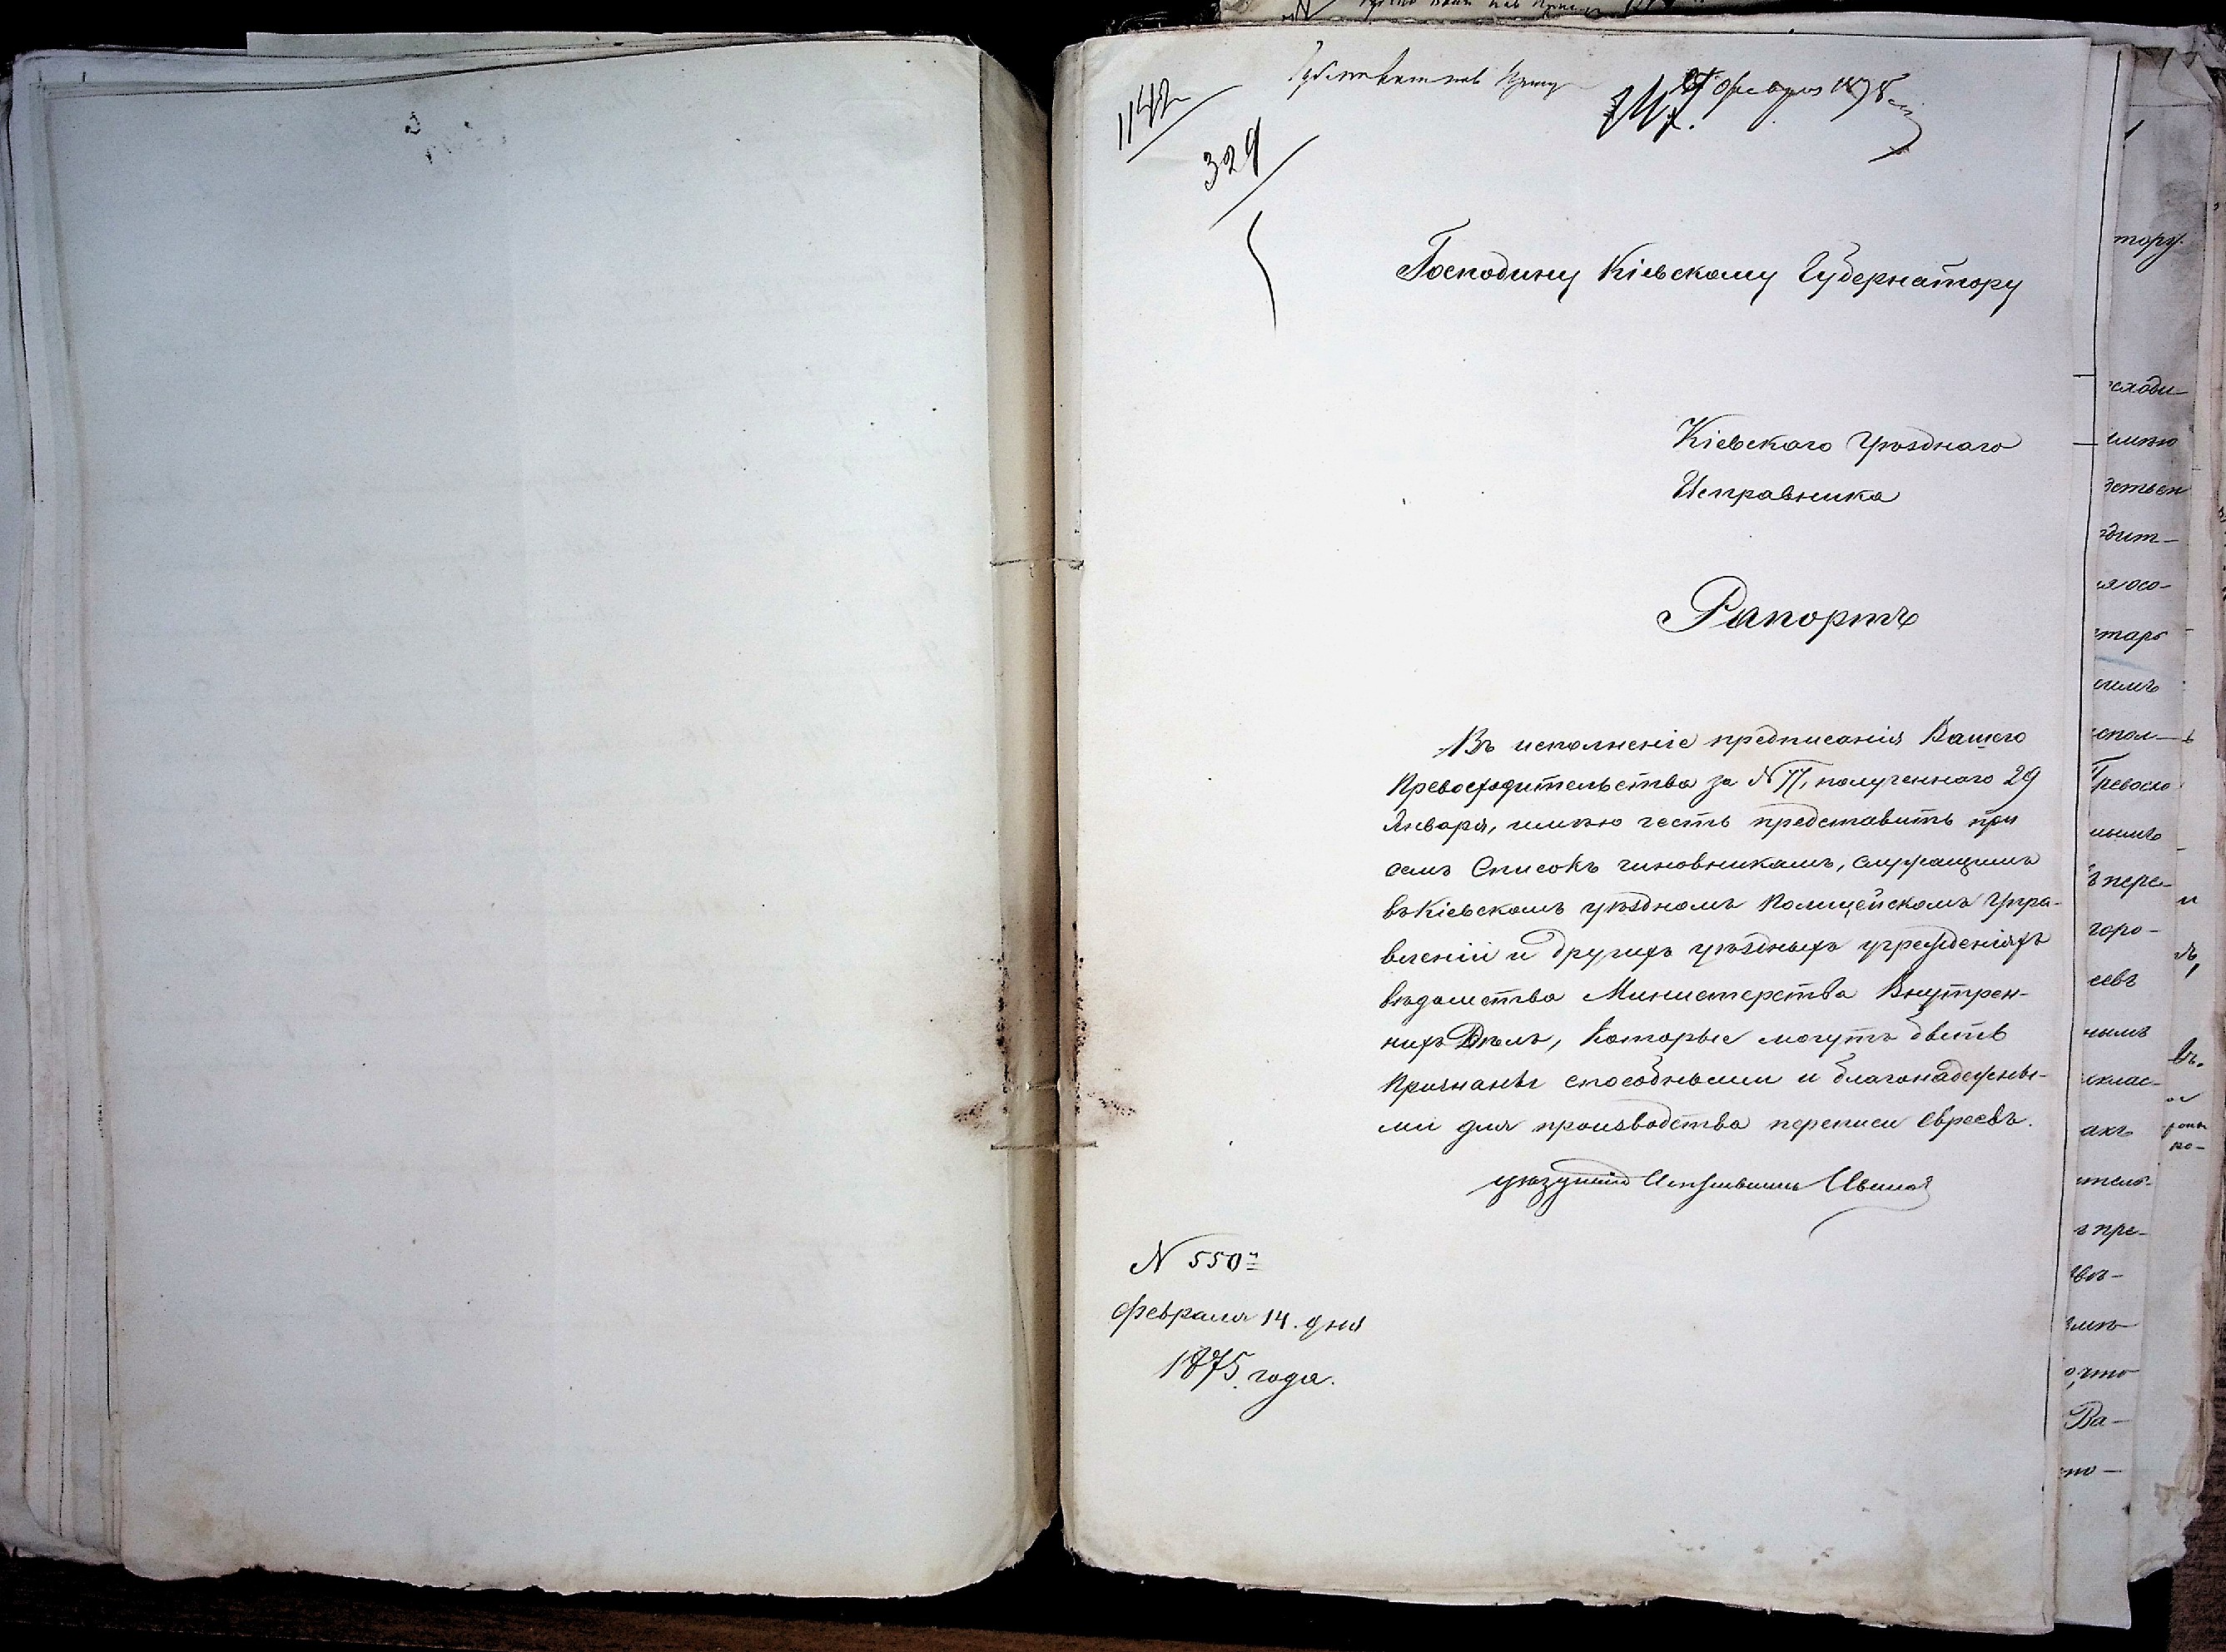 1142
329
Февраля 1875
Господину Кіевскому Губернатору
Кіевскаго Уѣзднаго
Исправника
Рапортъ
Въ исполненіе предписанія Вашего
Превосходительства за N 77, полученнаго 29
Января, имѣю честь представить при
семъ Списокъ чиновникамъ, служащимъ
въ Кіевскомъ уѣздномъ Полицейскомъ Упра-
вленіи и другихъ уѣздныхъ учрежденіяхъ
вѣдомства Министерства Внутрен-
нихъ Дѣлъ, Которые могутъ быть
Признаны способными и благонадежны-
ми для производства переписи Евреевъ.
Уѣздный Исправникъ
N 550
Февраля 14. дня
1875 года.
тору.
сходи-
имѣю
дит-
осо-
спол-
Превосхо
ъ пере-
горо-
евъ
нымъ
акъ
ъ пре-
о, что
Ва-